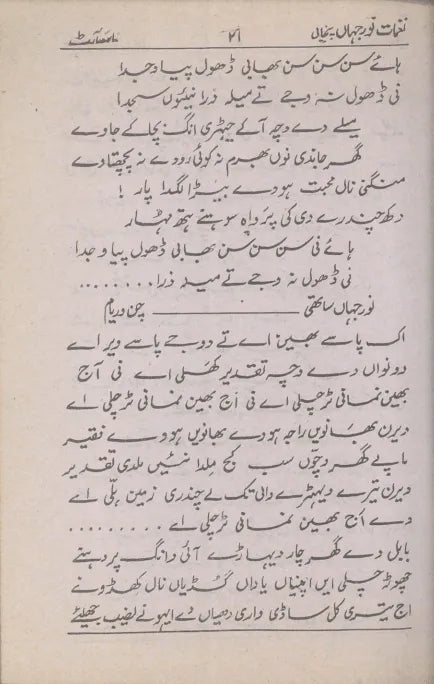 نغمات نور جہاں پنجابی ۲۱
ہائے سن سن سن بھابی ڈھول پیا وجدا
نی ڈھول نہ وجے تے میلہ ذرا نیئوں سجدا
میلے دے وچہ آکے جیہڑی انگ بچا کے جاوے
گھر جاندی نوں بھرم نہ کوئی رووے نہ پچھتاوے
منگنی نال محبت ہووے بیڑا لگدا پار !
دکھ چندرے دی کی پرواہ سوہنے ہتھ مہار
ہائے نی سن سن سن بھابی ڈھول پیا وجدا
نی ڈھول نہ وجے تے میلہ ذرا ........
نور جہاں ساتھی ـــــــــ چن وریام
اک پاسے بھین اے تے دوجے پاسے ویر اے
دونواں دے وچہ تقدیر کھلی اے نی آج
بھین نمانی ٹر چلی اے نی اج بھین نمانی ٹر چلی اے
ویرن بھانویں راجہ ہووے بھانویں ہووے فقیر
ماپے گھر وچوں سب کج ملدا نئیں ملدی تقدیر
ویرن تیرے ویہڑے دانی تک لے چندری زمین ہلی اے
وے اج بھین نمانی ٹر چلی اے .........
بابل دے گھر چار دیہاڑے آئی وانگ پردہنے
چھوڑ چلی ایں اپنیاں یاداں گڈیاں نال کھڈونے
اج میری کل ساڈی واری دھیاں دے ایہو نے نصیب